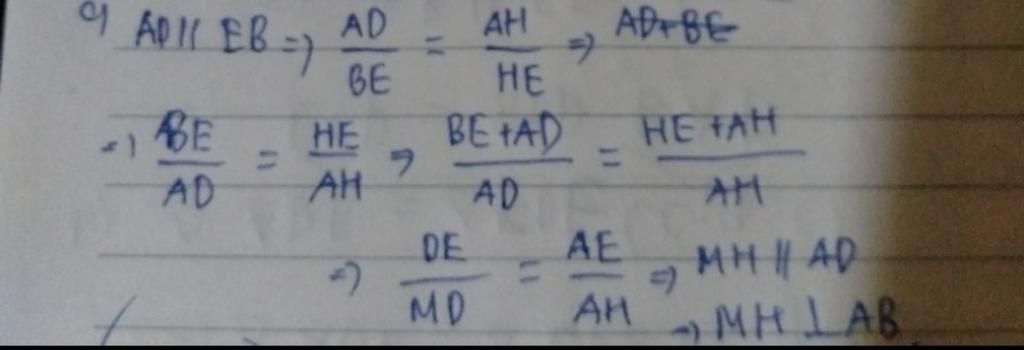 c) AD // EB => AD/BE = AH/HE => AD+BE
=> BE/AD = HE/AH => BE+AD/AD = HE+AH/AH
=> DE/MD = AE/AH => MH // AD
=> MH ⊥ AB